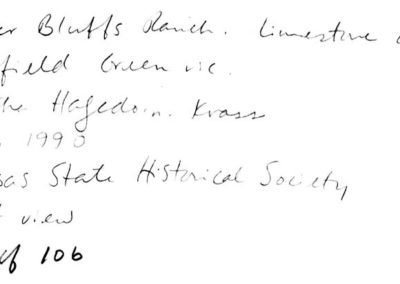 er Bluffs Ranch. Limestone
field Green vic.
the Hagedorn-Krass
1990
sas State Historical Society
view
of 106